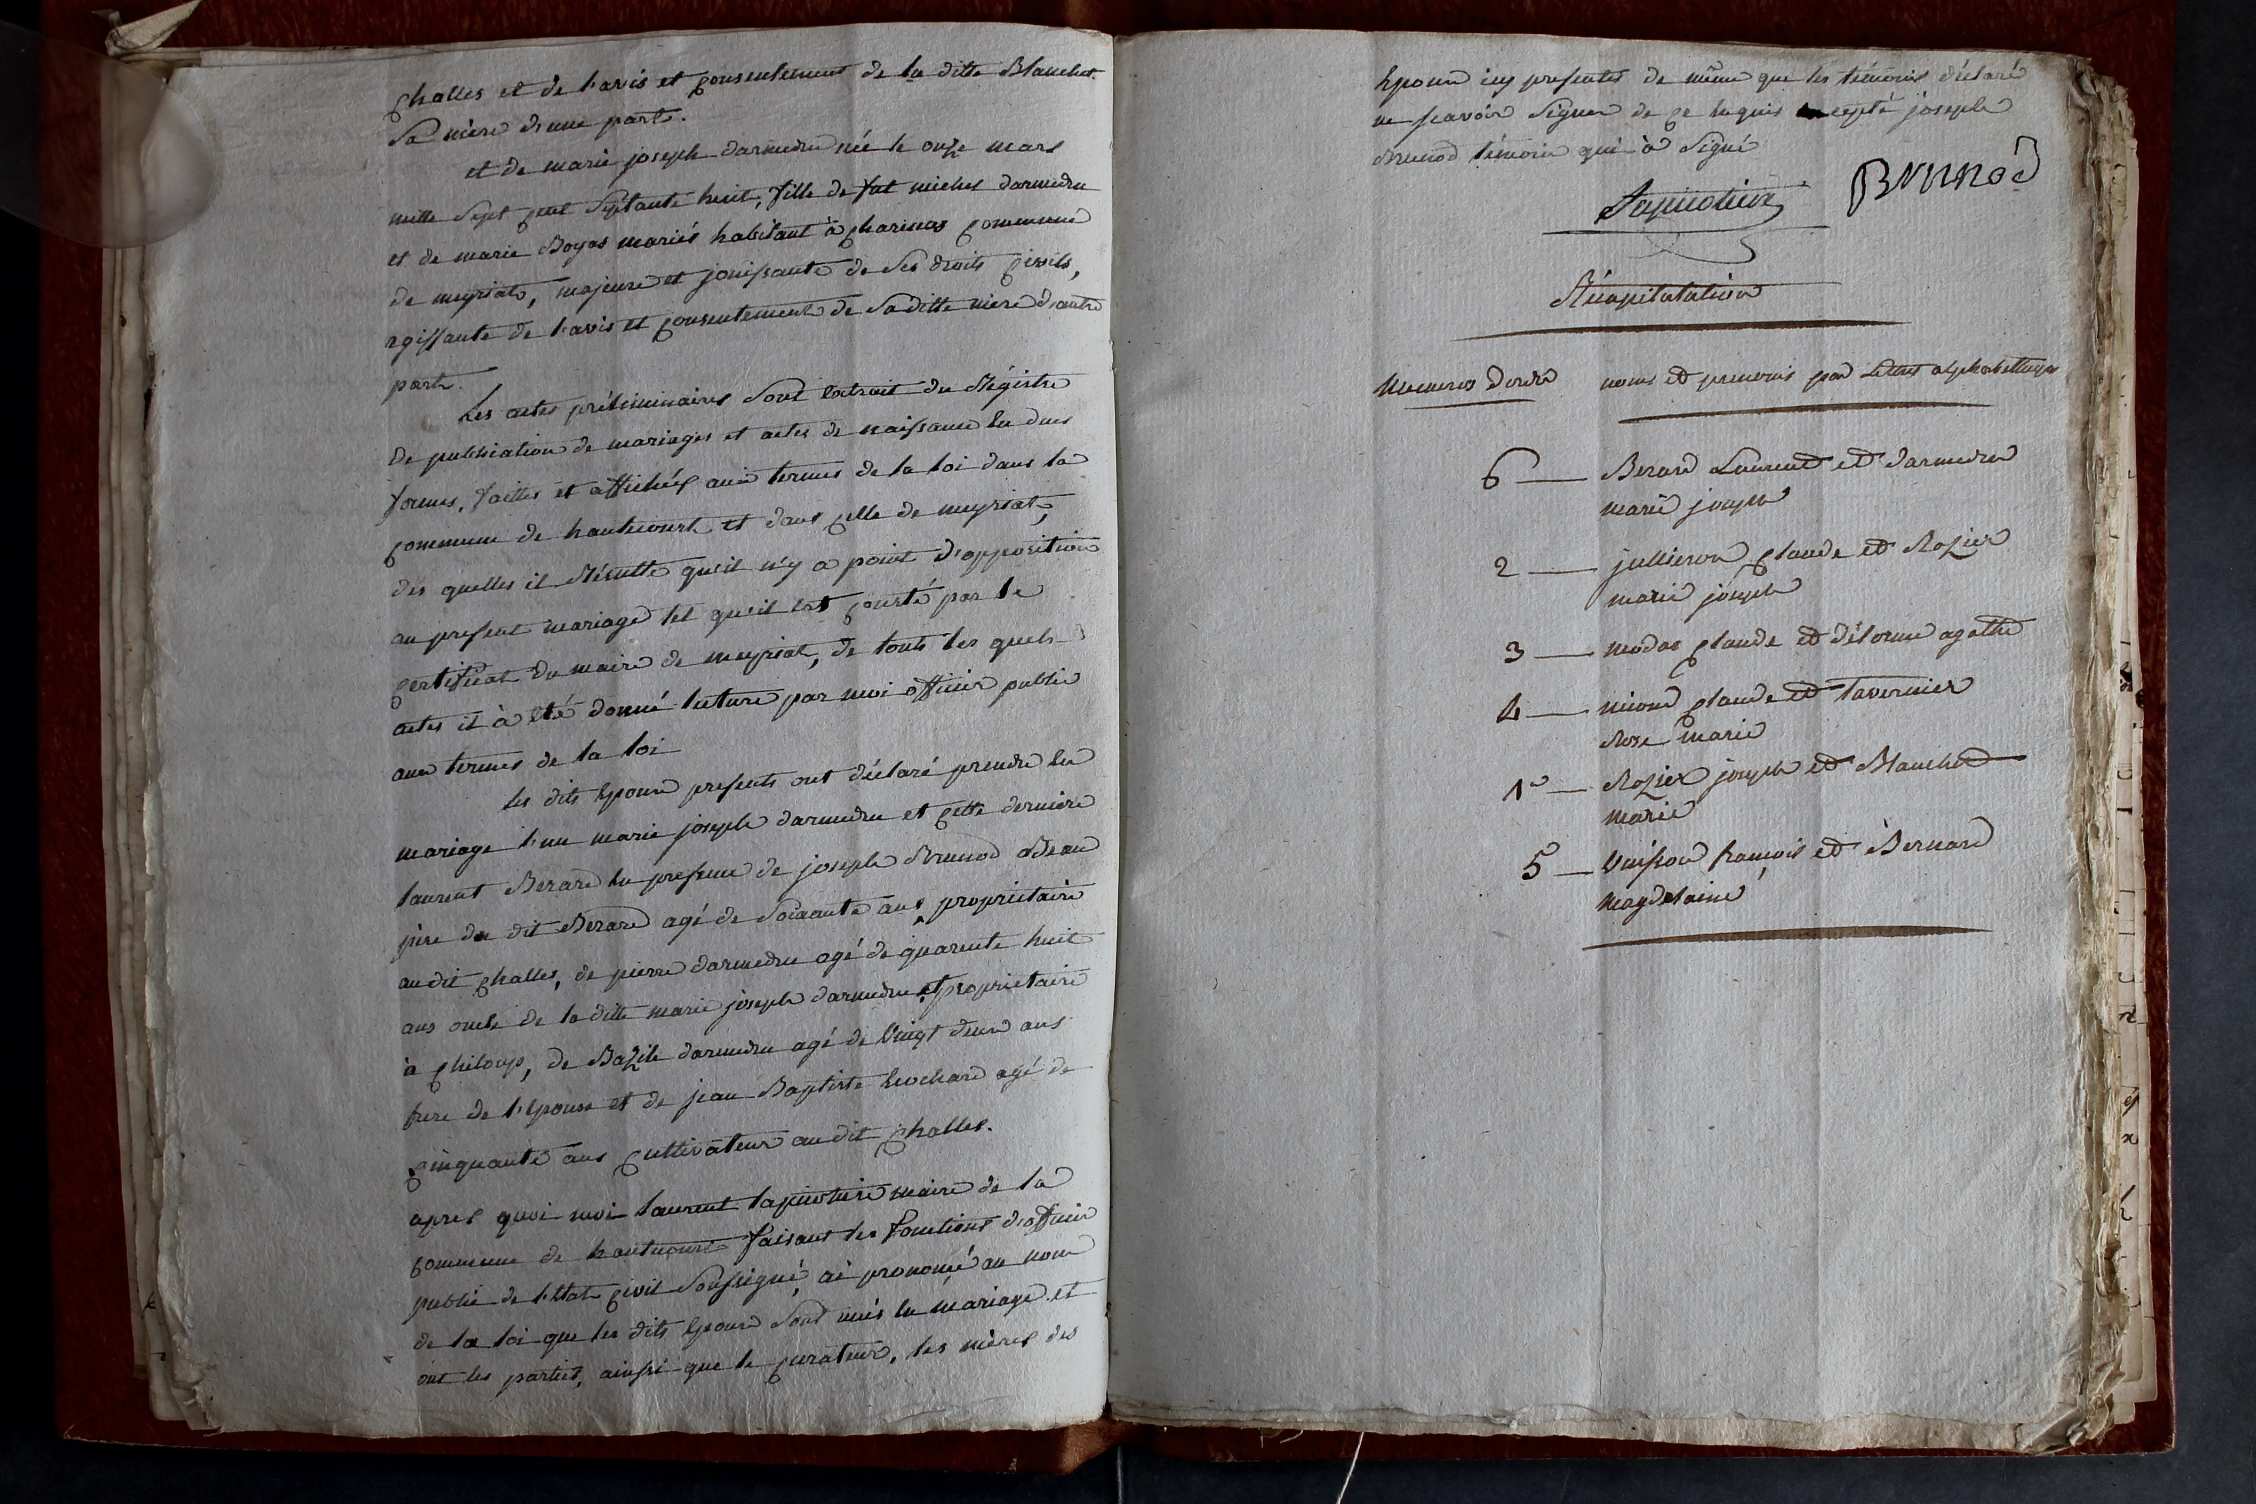 challes et de l'avis et consentement de la ditte Blanchet
sa mère d'une part.
et de marie joseph darmedru née le onze mars
mille sept cent septante huit, fille de fut michel darmedru
et de marie Boyas mariés habitant à charinas commune
de meyriat, majeure et jouissante de ses droits civils,
agissante de l'avis et consentement de sa ditte mère d'autre
part.
Les actes préliminaires sont extrait du Régistre
de publication de mariages et actes de naissance en dues
formes, faittes et affichées aux termes de la loi dans la
commune de hautecourt et dans celle de meyriat,
des quelles il Résulte qu'il n'y a point d'opposition
au present mariage tel qu'il est consté par le
certificat du maire de meyriat, de touts les quels
actes il à été donné lecture par moi officier public
aux termes de la loi
les dits Epoux presents ont déclaré prendre en
mariage l'un marie joseph darmedru et cette dernière
laurent Berard en presence de joseph Brunod Beau
père du dit Berard agé de soixante ans propriétaire
au dit challes, de pierre darmedru agé de quarente huit
ans oncle de la ditte marie joseph darmedru et propriétaire
à chiloup, de Bazile darmedru agé de vingt deux ans
frere de l'Epouse et de jean Baptiste Enochard agé de
cinquante ans cultivateur au dit challes.
apres quoi moi laurent tapinotiere maire de la
commune de hautecourt faisant les fonctions d'officier
public de l'Etat civil soussigné, ai prononcé au nom
de la loi que les dits Epoux sont unis en mariage et
ont les parties, ainsi que le curateur, les mères des
Epoux icy presentes de même que les témoins déclaré
ne scavoir signer de ce requis excepté joseph
Brunod témoin qui à signé
BRUNOD
Récapitulation
Numeros d'ordre noms et prenoms par Lettres alphabettiques
6 — Berard Laurent et darmedru
marie joseph
2 — jullieron claude et Rozier
marie joseph
3 — modas claude et délorme agathe
4 — niond claude et tavernier
Rose marie
1er — Rozier joseph et Blanchet
marie
5 — Vuisson françois et Bernard
magdelaine